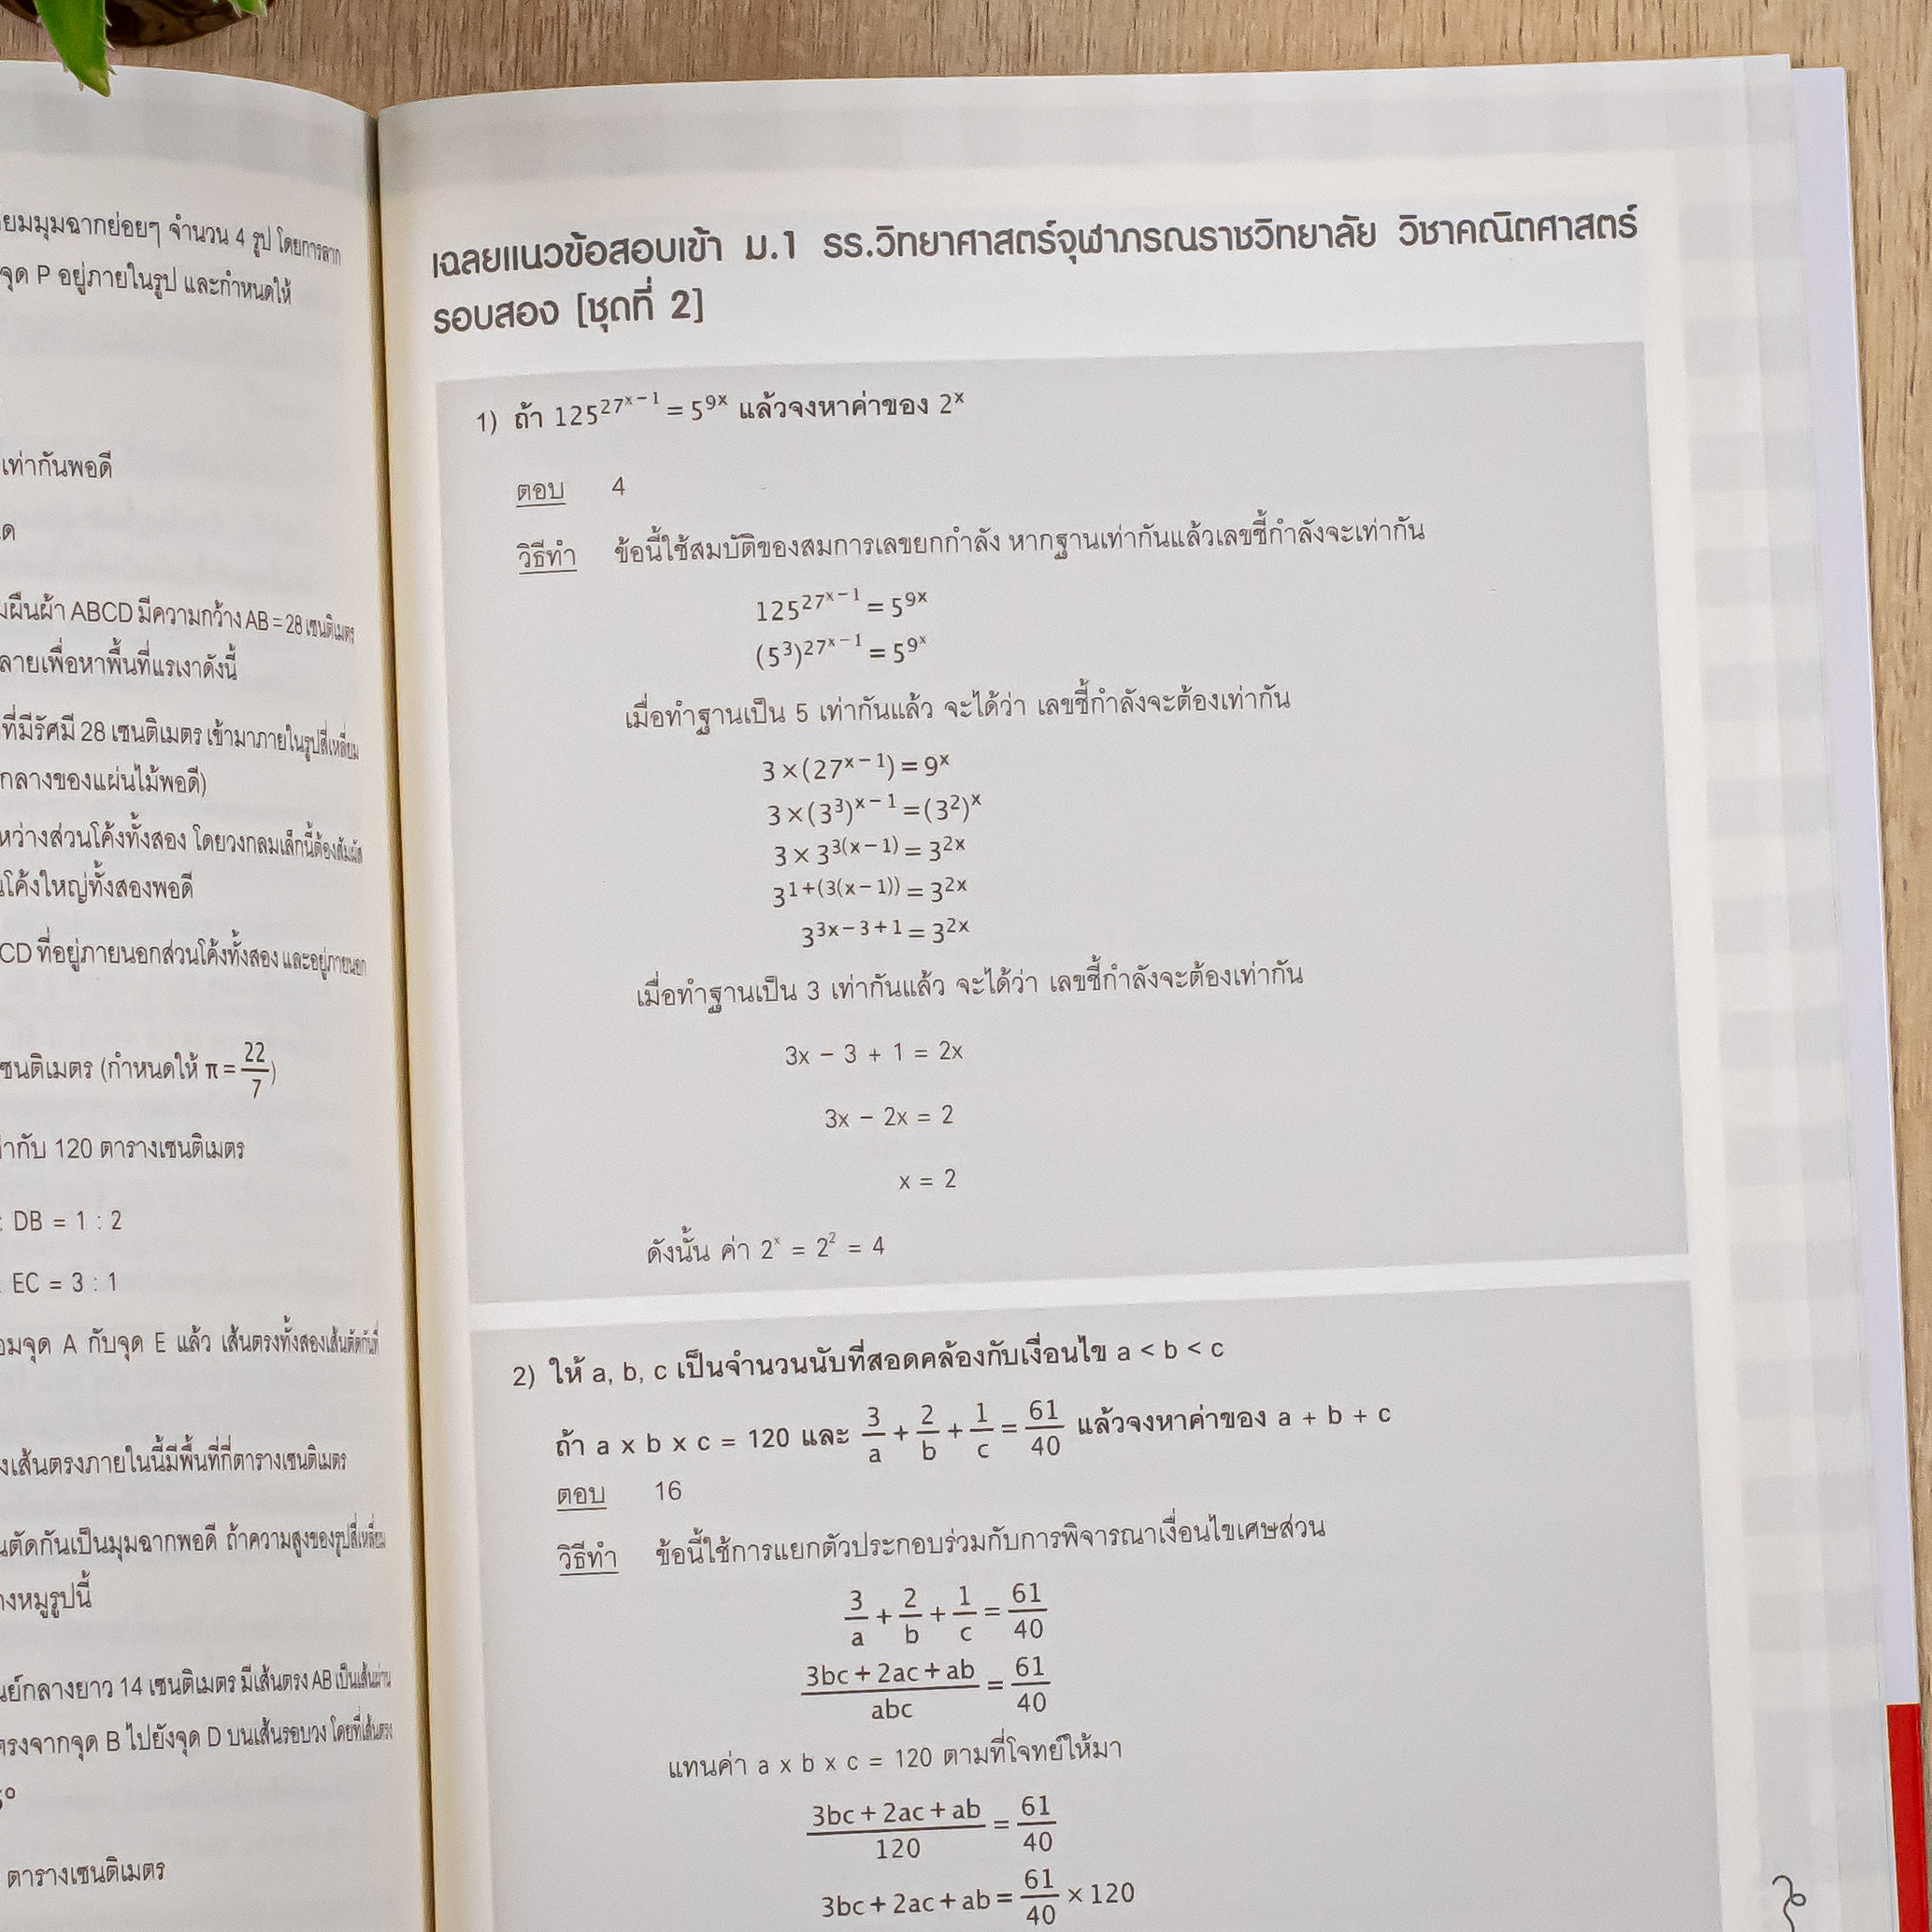 ยมมุมฉากย่อยๆ จำนวน 4 รูป โดยการลาก
จุด P อยู่ภายในรูป และกำหนดให้
เท่ากันพอดี
ผืนผ้า ABCD มีความกว้าง AB = 28 เซนติเมตร
ลายเพื่อหาพื้นที่แรเงาดังนี้
ที่มีรัศมี 28 เซนติเมตร เข้ามาภายในรูปสี่เหลี่ยม
กลางของแผ่นไม้พอดี)
หว่างส่วนโค้งทั้งสอง โดยวงกลมเล็กนี้ต้องสัมผัส
โค้งใหญ่ทั้งสองพอดี
CD ที่อยู่ภายนอกส่วนโค้งทั้งสอง และอยู่ภายนอก
ซนติเมตร (กำหนดให้ π = 22/7)
ากับ 120 ตารางเซนติเมตร
: DB = 1 : 2
: EC = 3 : 1
อมจุด A กับจุด E แล้ว เส้นตรงทั้งสองเส้นตัดกันที่
งเส้นตรงภายในนี้มีพื้นที่กี่ตารางเซนติเมตร
นตัดกันเป็นมุมฉากพอดี ถ้าความสูงของรูปสี่เหลี่ยม
างหมูรูปนี้
นย์กลางยาว 14 เซนติเมตร มีเส้นตรง AB เป็นเส้นผ่าน
ตรงจากจุด B ไปยังจุด D บนเส้นรอบวง โดยที่เส้นตรง
ตารางเซนติเมตร
เฉลยแนวข้อสอบเข้า ม.1 รร.วิทยาศาสตร์จุฬาภรณราชวิทยาลัย วิชาคณิตศาสตร์
รอบสอง [ชุดที่ 2]
1) ถ้า 125^27^x−1 = 5^9x แล้วจงหาค่าของ 2^x
ตอบ 4
วิธีทำ ข้อนี้ใช้สมบัติของสมการเลขยกกำลัง หากฐานเท่ากันแล้วเลขชี้กำลังจะเท่ากัน
125^27^x−1 = 5^9x
(5^3)^27^x−1 = 5^9^x
เมื่อทำฐานเป็น 5 เท่ากันแล้ว จะได้ว่า เลขชี้กำลังจะต้องเท่ากัน
3×(27^x−1) = 9^x
3×(3^3)^x−1 = (3^2)^x
3 × 3^3(x−1) = 3^2x
3^1+(3(x−1)) = 3^2x
3^3x−3+1 = 3^2x
เมื่อทำฐานเป็น 3 เท่ากันแล้ว จะได้ว่า เลขชี้กำลังจะต้องเท่ากัน
3x − 3 + 1 = 2x
3x − 2x = 2
x = 2
ดังนั้น ค่า 2^x = 2^2 = 4
2) ให้ a, b, c เป็นจำนวนนับที่สอดคล้องกับเงื่อนไข a < b < c
ถ้า a x b x c = 120 และ 3/a + 2/b + 1/c = 61/40 แล้วจงหาค่าของ a + b + c
ตอบ 16
วิธีทำ ข้อนี้ใช้การแยกตัวประกอบร่วมกับการพิจารณาเงื่อนไขเศษส่วน
3/a + 2/b + 1/c = 61/40
3bc + 2ac + ab/abc = 61/40
แทนค่า a x b x c = 120 ตามที่โจทย์ให้มา
3bc + 2ac + ab/120 = 61/40
3bc + 2ac + ab = 61/40 × 120